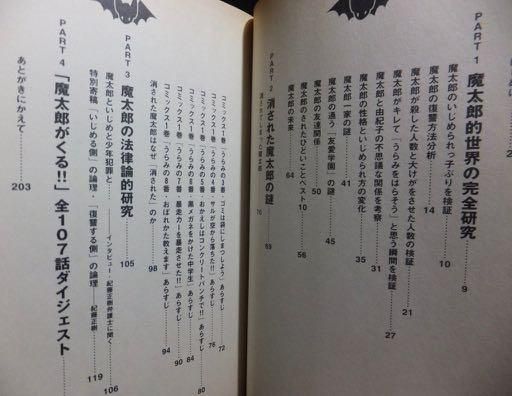 PART 1 魔太郎的世界の完全研究 9
魔太郎のいじめられっ子ぶりを検証 10
魔太郎の復讐方法分析 14
魔太郎が殺した人数と大けがをさせた人数の検証 21
魔太郎がキレて「うらみをはらそう」と思う瞬間を検証 27
魔太郎と由紀子の不思議な関係を考察 31
魔太郎の性格といじめられ方の変化 35
魔太郎一家の謎 41
魔太郎の通う「友愛学園」の謎 45
魔太郎の友達関係 50
魔太郎のされたひどいことベスト10 56
魔太郎の未来 64
PART 2 消された魔太郎の謎 69
コミックス1巻「うらみの7番・ゴミは袋にしまつしよう」あらすじ 72
コミックス1巻「うらみの4番・サルが空から落ちた!!」あらすじ 76
コミックス1巻「うらみの5番・おかえしはコンクリートパンチで!!」あらすじ 80
コミックス1巻「うらみの6番・黒メガネをかけた中学生」あらすじ 84
「暴走カーを暴走させた!!」あらすじ 90
コミックス1巻「うらみの8番・おぼれかた教えます」あらすじ 94
消された魔太郎はなぜ「消された」のか 98
PART 3 魔太郎の法律論的研究 105
魔太郎といじめと少年犯罪と インタビュー・紀藤正樹弁護士に聞く 106
特別寄稿「いじめる側」の論理・「復讐する側」の論理 紀藤正樹 119
PART 4 「魔太郎がくる!!」全107話ダイジェスト
あとがきにかえて 203